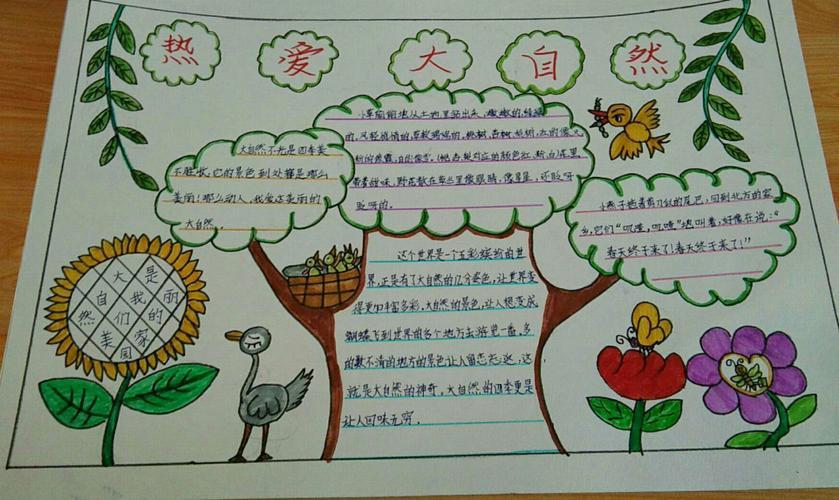 热爱大自然
大自然不光是四季美
不胜收,它的景色到处都是那么
美丽!那么动人,我爱这美丽的
大自然。
小草偷偷地从土地里钻出头,嫩嫩的绿绿
的,风轻悄悄的,草软绵绵的,桃树、杏树、梨树,
着甜味,野花散在草丛里像眼睛,像星星,还眨呀
眨呀的。
小燕子拖着剪刀似的尾巴,回到北方的家
乡,它们“叽喳,叽喳”地叫着,好像在说:“
春天终于来了!春天终于来了!”
这个世界是一个五彩缤纷的世
界,正是有了大自然的几分姿色,让世界变
得更加丰富多彩,大自然的景色,让人想变成
蝴蝶飞到世界的各个地方去游览一番,多
的数不清的地方的景色让人留恋
就是大自然的神奇,大自然的四季更是
让人回味无穷。
大是
自我丽
然们的
美国家